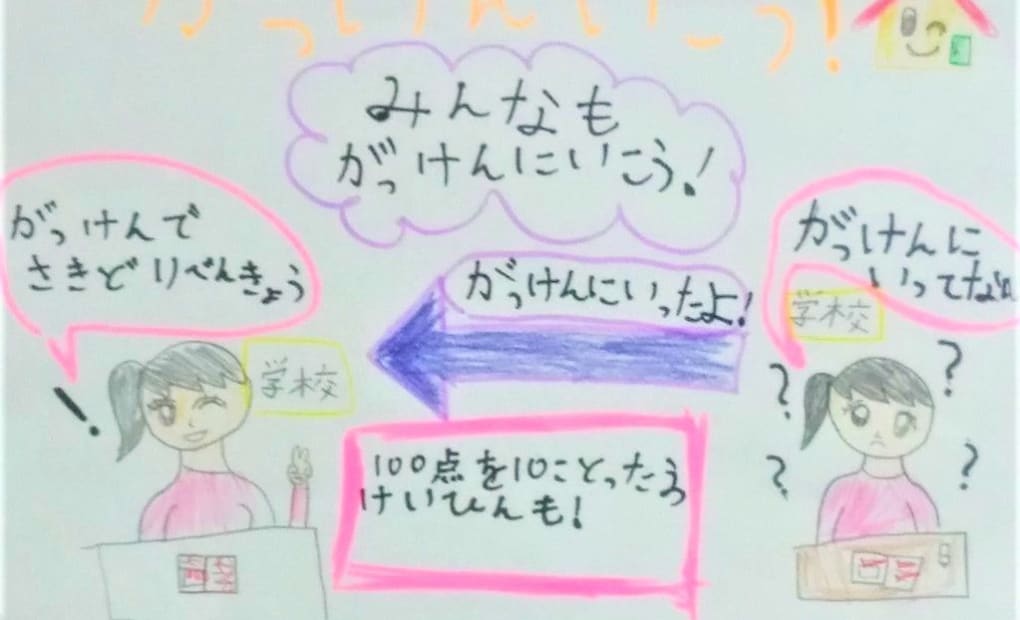 がっけんいこう!
みんなも
がっけんにいこう!
がっけんで
さきどりべんきょう
がっけんにいったよ!
がっけんに
いってない
学校
学校
100点を10ことったら
けいひんも!
! ? ? ? ?